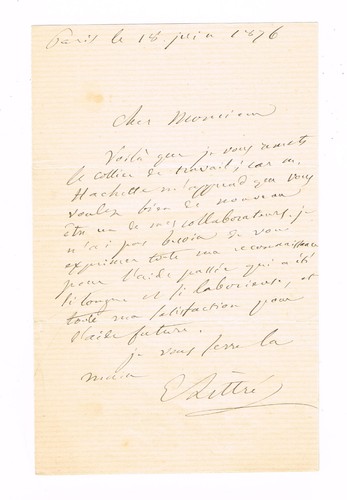 Paris le 18 juin 1876
Cher Monsieur
Voilà que je vous remets
le collier de travail; car M.
Hachette m'apprend que vous
voulez bien de nouveau
être un de mes collaborateurs. je
n'ai pas besoin de vous
exprimer toute ma reconnaissance
pour l'aide passée qui a été
si longue et si laborieuse, et
toute ma satisfaction pour
l'aide future.
je vous serre la
main
E Littré